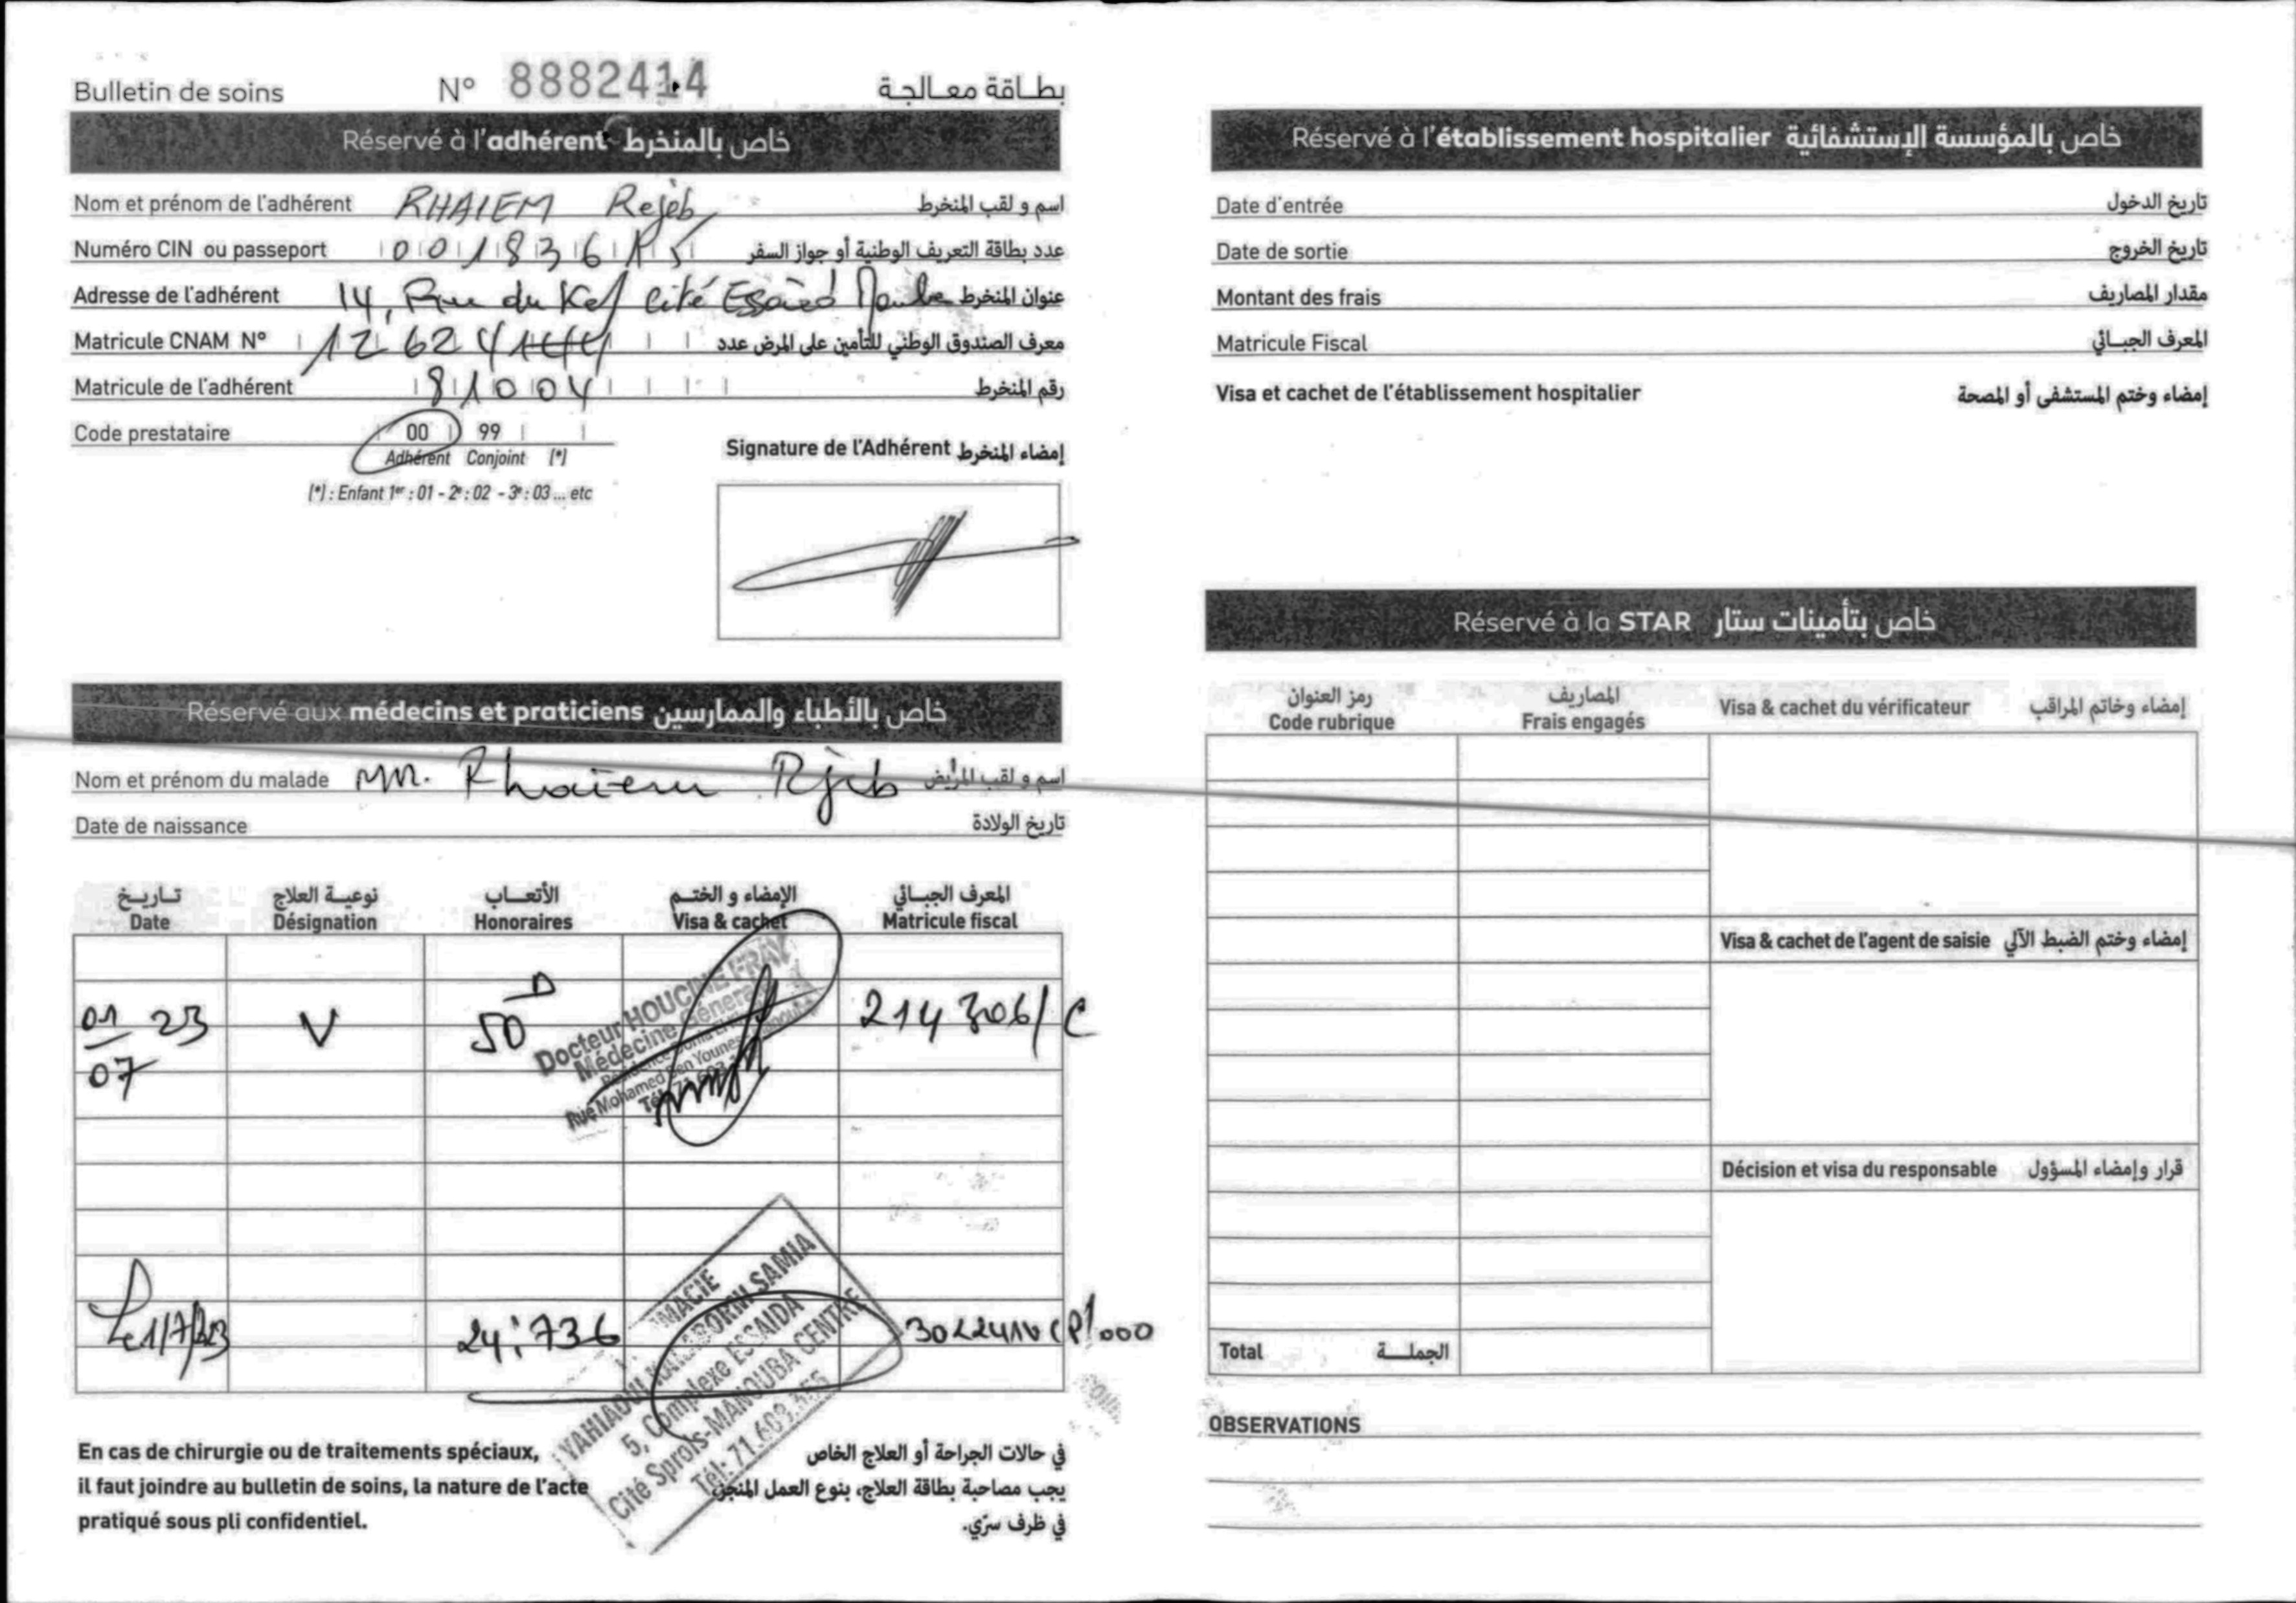 Bulletin de soins N° 8882414 بطاقة معالجة
Réservé à l'adhérent خاص بالمنخرط
Nom et prénom de l'adhérent RHAIEM Rejeb اسم و لقب المنخرط
Numéro CIN ou passeport 001836 عدد بطاقة التعريف الوطنية أو جواز السفر
Adresse de l'adhérent 14, Rue du Kef cité Essaied عنوان المنخرط
Matricule CNAM N° معرف الصندوق الوطني للتأمين على المرض عدد
Matricule de l'adhérent 81004 رقم المنخرط
Code prestataire 00 99
Adhérent Conjoint (*)
(*) : Enfant 1er : 01 - 2e : 02 - 3e : 03 ... etc
Signature de l'Adhérent إمضاء المنخرط
Réservé aux médecins et praticiens خاص بالأطباء والممارسين
Nom et prénom du malade Mr. Rhaiem Rjeb اسم و لقب المريض
Date de naissance تاريخ الولادة
تاريخ نوعية العلاج الأتعاب الإمضاء و الختم المعرف الجبائي
Date Désignation Honoraires Visa & cachet Matricule fiscal
01 07 23 V 50 D 214306/C
Docteur HOUCINE FRAY
Médecine Générale
Rue Mohamed Ben Younes
Le 1/7/23 24,736
YAHIAOUI SAMIA
5, Complexe ESSAIDA
Cité Sprols-MANOUBA CENTRE
Tél: 71.603.355
En cas de chirurgie ou de traitements spéciaux,
il faut joindre au bulletin de soins, la nature de l'acte
pratiqué sous pli confidentiel.
في حالات الجراحة أو العلاج الخاص
يجب مصاحبة بطاقة العلاج، بنوع العمل المنجز،
في ظرف سرّي.
Réservé à l'établissement hospitalier خاص بالمؤسسة الإستشفائية
Date d'entrée تاريخ الدخول
Date de sortie تاريخ الخروج
Montant des frais مقدار المصاريف
Matricule Fiscal المعرف الجبائي
Visa et cachet de l'établissement hospitalier إمضاء وختم المستشفى أو المصحة
Réservé à la STAR خاص بتأمينات ستار
رمز العنوان المصاريف
Code rubrique Frais engagés Visa & cachet du vérificateur إمضاء وخاتم المراقب
Visa & cachet de l'agent de saisie إمضاء وختم الضبط الآلي
Décision et visa du responsable قرار وإمضاء المسؤول
Total الجملة
OBSERVATIONS